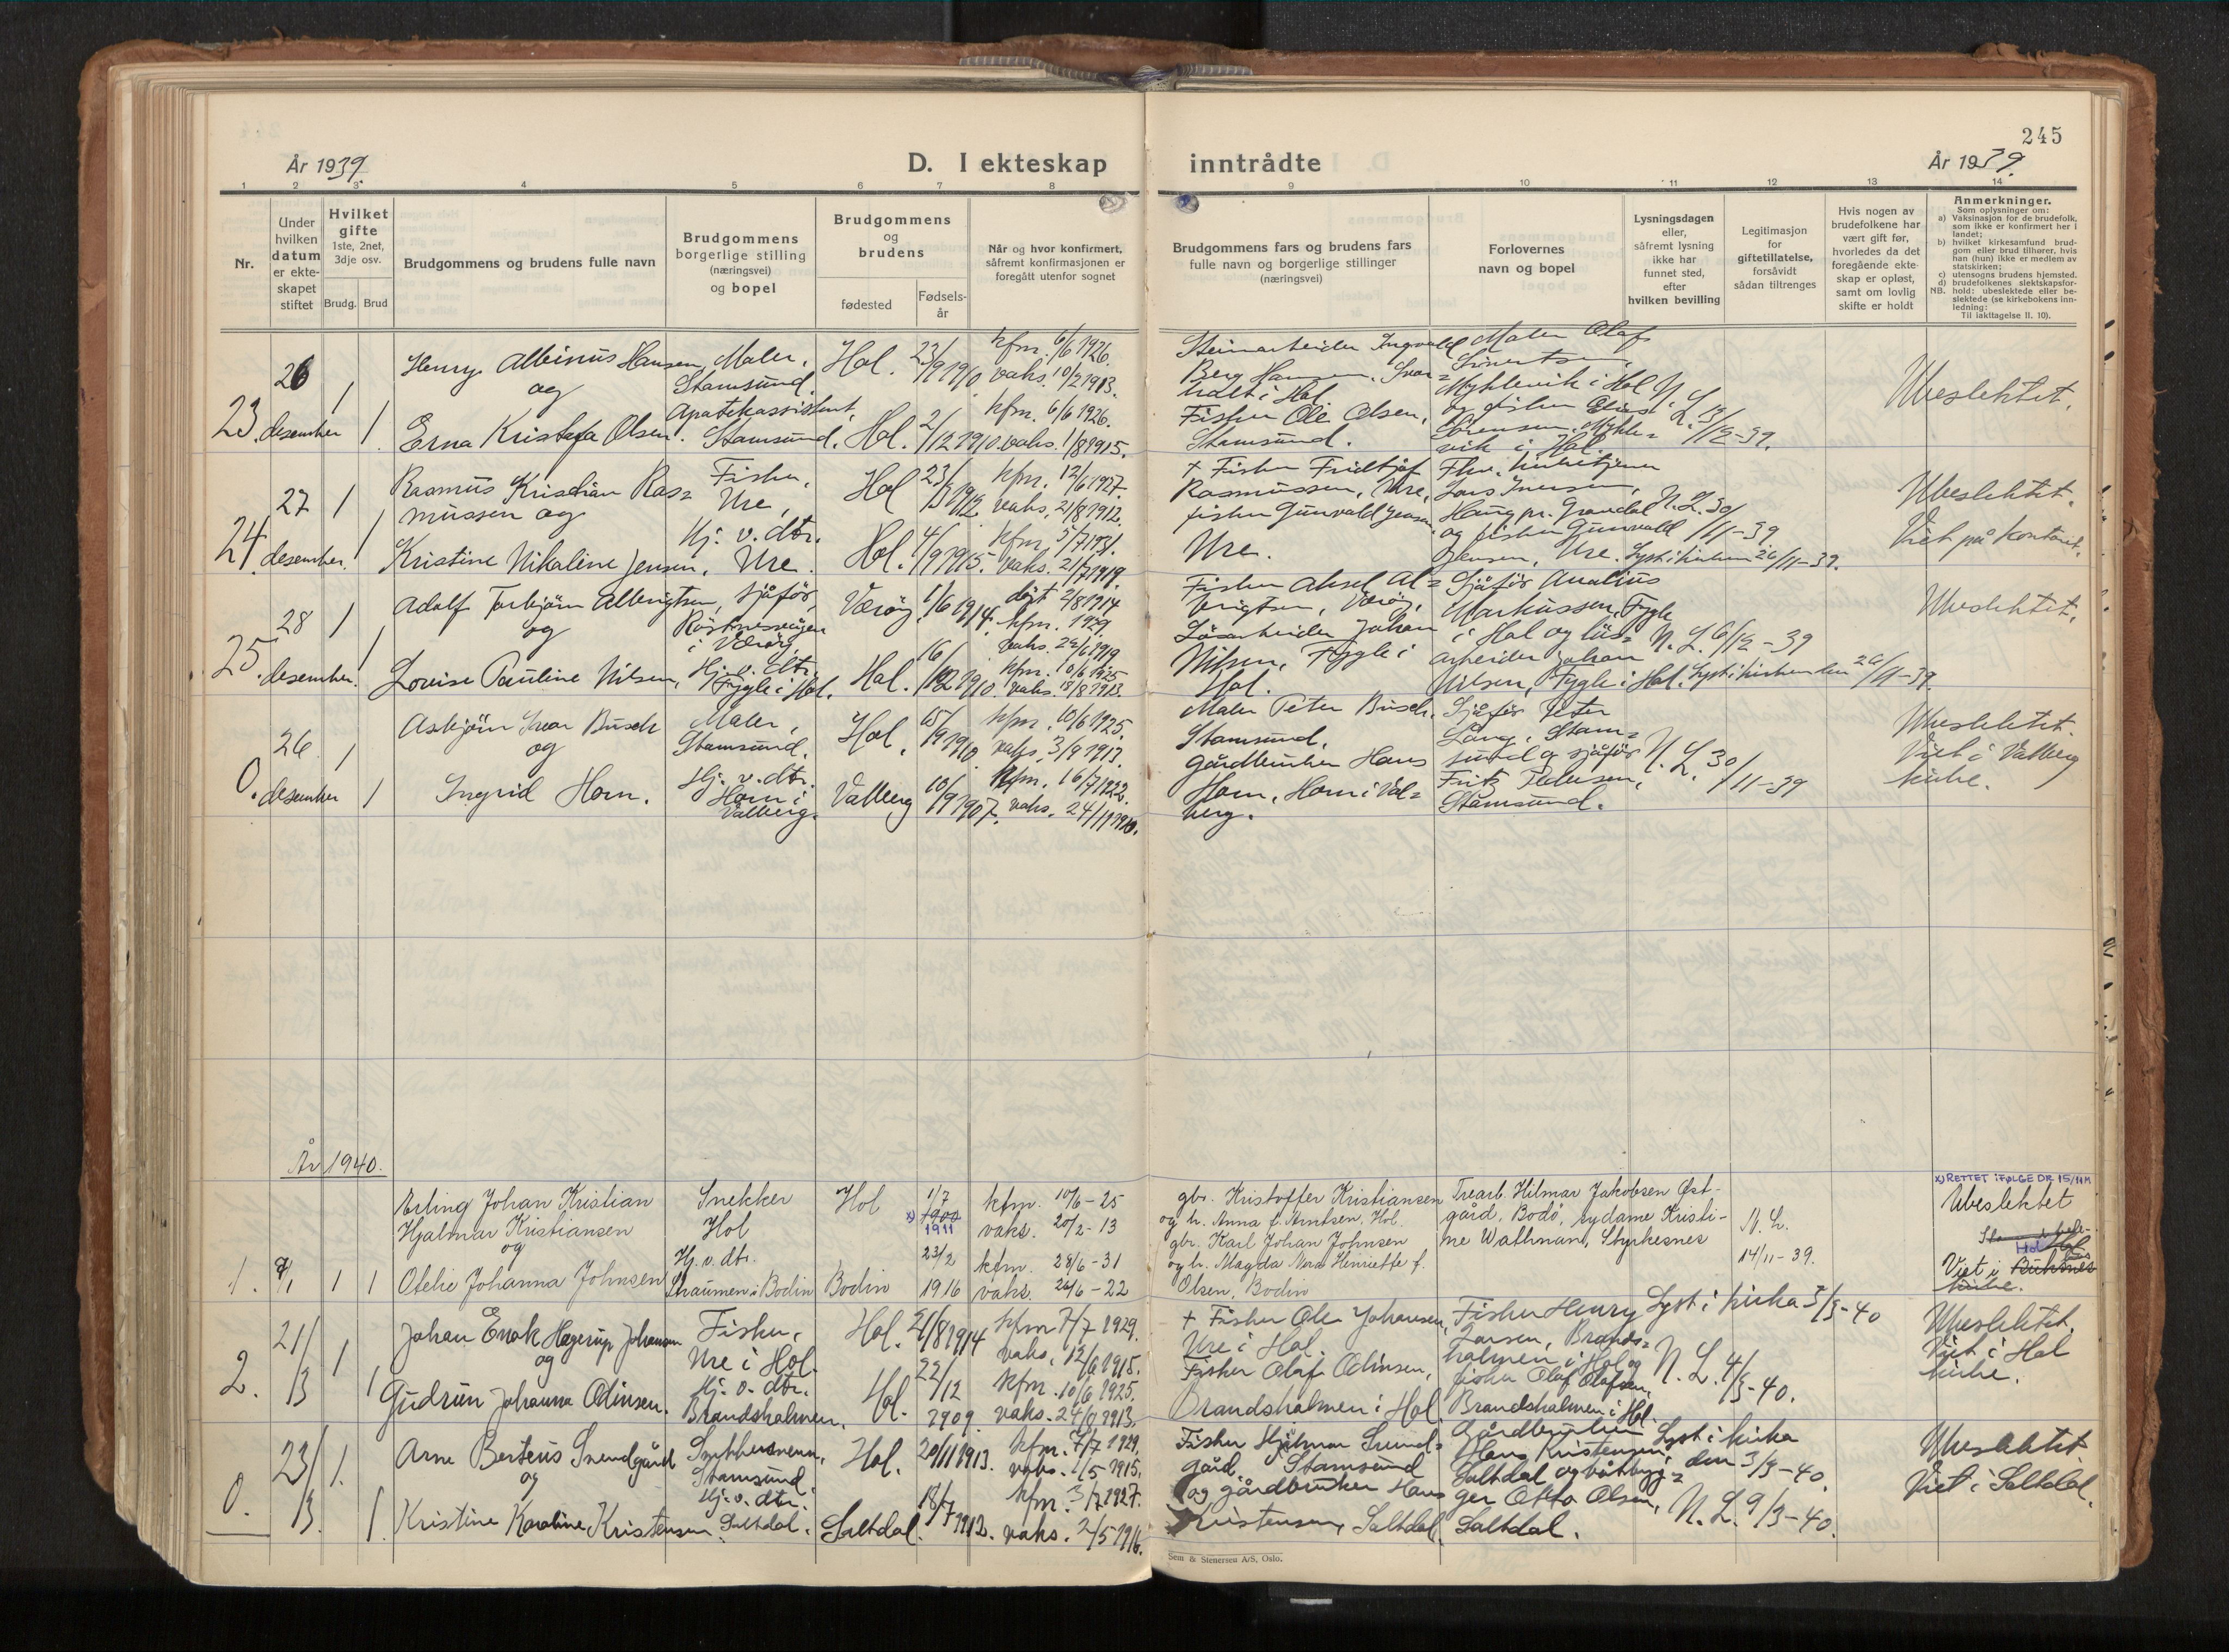 245
År 1939.
D. I ekteskap inntrådte
År 1939.
1 2 3 4 5 6 7 8 9 10 11 12 13 14
Nr.
Under hvilken datum er ekteskapet stiftet
Hvilket gifte
1ste, 2net, 3dje osv.
Brudg. Brud
Brudgommens og brudens fulle navn
Brudgommens borgerlige stilling (næringsvei) og bopel
Brudgommens og brudens
fødested
Fødsels-
år
Når og hvor konfirmert,
såfremt konfirmasjonen er
foregått utenfor sognet
Brudgommens fars og brudens fars
fulle navn og borgerlige stillinger
(næringsvei)
Forlovernes
navn og bopel
Lysningsdagen
eller,
såfremt lysning
ikke har
funnet sted,
efter
hvilken bevilling
Legitimasjon
for
giftetillatelse,
forsåvidt
sådan tiltrenges
Hvis nogen av
brudefolkene har
vært gift før,
hvorledes da det
foregående ekte-
skap er opløst,
samt om lovlig
skifte er holdt
Anmerkninger.
Som oplysninger om:
a) Vaksinasjon for de brudefolk,
som ikke er konfirmert her i
landet;
b) hvilket kirkesamfund brud-
gom eller brud tilhører, hvis
han (hun) ikke er medlem av
statskirken;
c) utensogns brudens hjemsted.
d) brudefolkenes slektskapsfor-
NB. hold: ubeslektede eller be-
slektede (se kirkebokens inn-
ledning:
Til iakttagelse II. 10).
23. 26 desember 1 1
Henry Albinus Hansen
og
Erna Kristofa Olsen.
Maler,
Stamsund.
Apotekassistent,
Stamsund.
Hol. 23/9 1910. kfm. 6/6 1926. vaks. 10/2 1913.
Hol. 2/12 1910. kfm. 6/6 1926. vaks. 1/8 1915.
Steinarbeider Ingvald
Berg Hansen, Svar=
holt i Hol
Fisker Ole Olsen,
Stamsund.
Maler Olaf
Sivertsen,
Myklevik i Hol
og fisker
Sørensen, Mykle=
vik i Hol.
N. L. 13/12-39.
Ubeslektet.
24. 27 desember. 1 1
Rasmus Kristian Ras=
mussen og
Kristine Nikoline Jensen.
Fisker,
Ure,
Hj. v. dtr.
Ure.
Hol 23/ 1912 kfm. 12/6 1927. vaks. 21/8 1912.
Hol. 4/9 1915. kfm. 5/7 1931. vaks. 21/7 1919.
+ Fisker Fridtjof
Rasmussen, Ure,
fisker Gunvald Jensen
Ure.
Fhv. kirketjener
Lars Iversen,
Haug pr. Gravdal
og fisker Gunvald
Jensen, Ure.
N. L. 30/11-39.
Lyst i kirken 26/11-39.
Ubeslektet.
Viet på kontoret.
25. 28 desember. 1 1
Adolf Torbjørn Albrigtsen,
og
Lovise Pauline Nilsen,
Sjåfør,
Røstnesvågen
i Værøy
Hj. v. dtr.
Fygle i Hol.
Værøy. 1/6 1914. døpt 2/8 1914 kfm. 1929.
Hol. 16/12 1910. vaks. 29/6 1919 kfm. 10/6 1925 vaks. 18/8 1913.
Fisker Aksel Al=
brigtsen, Værøy,
Løsarbeider Johan
Nilsen, Fygle i
Hol.
Sjåfør Analius
Markussen, Fygle
i Hol og løs=
arbeider Johan
Nilsen, Fygle i Hol.
N. L. 6/12-39
Lyst i kirken den 26/11-39.
Ubeslektet.
0. 26. desember 1 1
Asbjørn Ivar Busch
og
Ingrid Horn.
Maler,
Stamsund.
Hj. v. dtr.
Horn i
Valberg.
Hol. 15/9 1910. kfm. 10/6 1925. vaks. 3/9 1913.
Valberg 10/9 1907. kfm. 16/7 1922. vaks. 24/11 1910.
Maler Peter Busch,
Stamsund.
Gårdbruker Hans
Horn, Horn i Val=
berg.
Sjåfør Peter
Lang, Stam=
sund og sjåfør
Fritz Pedersen,
Stamsund.
N. L. 30/11-39
Ubeslektet.
Viet i Valberg
kirke.
År 1940.
1. 1/1 1 1
Erling Johan Kristian
Hjalmar Kristiansen
og
Otelie Johanna Johnsen
Snekker
Hol
Hj. v. dtr.
Straumen i Bodin
Hol 1/7 1900 x) 1911 kfm. 10/6-25 vaks. 20/2-13
Bodin 23/2 1916 kfm. 28/6-31 vaks. 26/6-22
gbr. Kristoffer Kristiansen
og h. Anna f. Arntsen, Hol.
gbr. Karl Johan Johnsen
og h. Magda Nora Henriette f.
Olsen, Bodin
Trearb. Hilmar Jakobsen Øst-
gård, Bodø, sydame Kristi-
ne Wathnand, Styrkesnes
N. L.
14/11-39.
x) RETTET IFØLGE DR 15/11 M
Ubeslektet
Hol
Viet i Buksnes
kirke.
2. 21/3 1 1
Johan Enok Hagerup Johansen
og
Gudrun Johanna Odinsen.
Fisker,
Ure i Hol.
Hj. v. dtr.
Brandsholmen.
Hol. 21/8 1914 kfm 7/7 1929. vaks. 12/6 1915.
Hol. 22/12 1909. kfm. 10/6 1925. vaks. 24/9 1913.
+ Fisker Ole Johansen,
Ure i Hol.
Fisker Olaf Odinsen,
Brandsholmen i Hol
Fisker Henry
Larsen, Brands=
holmen i Hol og
fisker Olaf Olafsen,
Brandsholmen i Hol.
Lyst i kirka 3/3-40
N. L. 4/3-40.
Ubeslektet.
Viet i Hol
kirke.
0. 23/3. 1. 1
Arne Berteus Svendgård
og
Kristine Karoline Kristensen.
Snekkersvenn,
Stamsund.
Hj. v. dtr.
Saltdal.
Hol. 20/11 1913. kfm. 7/7 1929. vaks. 1/5 1915.
Saltdal. 18/7 1912. kfm. 3/7 1927. vaks. 2/5 1916.
Fisker Hjalmar Svend=
gård, Stamsund
og gårdbruker Hans
Kristensen, Saltdal
Gårdbruker
Hans Kristensen
Saltdal og båtbyg=
ger Otto Olsen,
Saltdal.
Lyst i kirka
den 3/3-40.
N. L. 9/3-40.
Ubeslektet
Viet i Saltdal.
Sem & Stenersen A/S, Oslo.